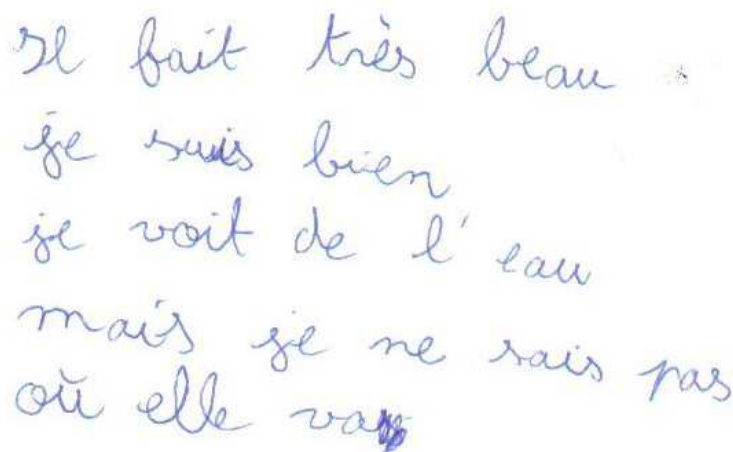 Il fait très beau
je suis bien
je voit de l'eau
mais je ne sais pas
où elle va